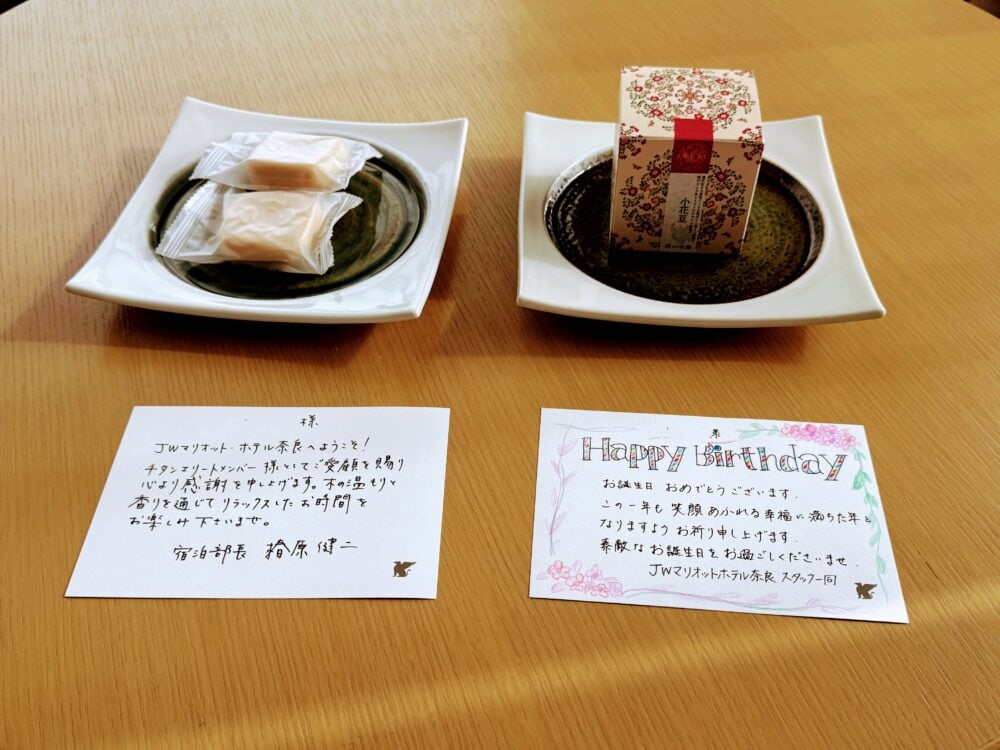 小花豆
様
JWマリオット・ホテル奈良へようこそ!
チタンエリートメンバー様としてご愛顧を賜り
心より感謝を申し上げます。木の温もりと
香りを通じてリラックスしたお時間を
お楽しみ下さいませ。
宿泊部長 檜原健二
様
Happy Birthday
お誕生日 おめでとうございます.
この一年も 笑顔あふれる幸福に満ちた年と
なりますよう お祈り申し上げます.
素敵な お誕生日を お過ごしくださいませ.
JWマリオットホテル奈良 スタッフ一同